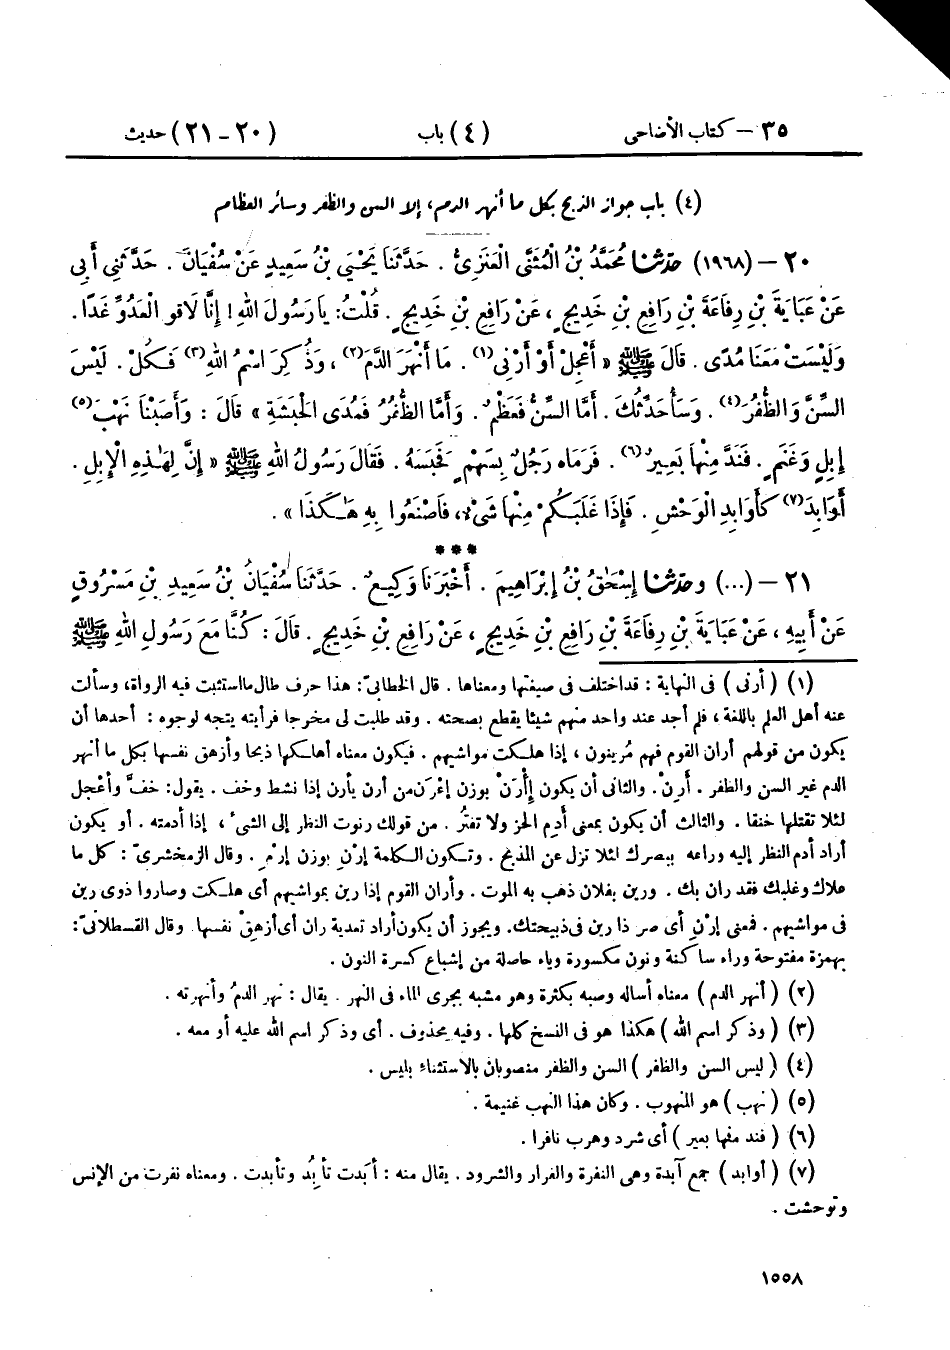 ٣٥ – كتاب الأضاحى (٤) باب (٢٠ – ٢١) حديث
(٤) باب جواز الذبح بكل ما أنهر الدم، إلا السن والظفر وسائر العظام
٢٠ – (١٩٦٨) حدثنا مُحَمَّدُ بْنُ الْمُثَنَّى الْعَنَزِيُّ . حَدَّثَنَا يَحْيَى بْنُ سَعِيدٍ عَنْ سُفْيَانَ . حَدَّثَنِي أَبِي
عَنْ عَبَايَةَ بْنِ رِفَاعَةَ بْنِ رَافِعِ بْنِ خَدِيجٍ ، عَنْ رَافِعِ بْنِ خَدِيجٍ . قُلْتُ: يَا رَسُولَ اللهِ ! إِنَّا لَاقُو الْعَدُوِّ غَدًا .
وَلَيْسَتْ مَعَنَا مُدًى . قَالَ ﷺ « أَعْجِلْ أَوْ أَرْنِي(١) . مَا أَنْهَرَ الدَّمَ(٢) ، وَذُكِرَ اسْمُ اللهِ(٣) فَكُلْ . لَيْسَ
السِّنَّ وَالظُّفُرَ(٤) . وَسَأُحَدِّثُكَ . أَمَّا السِّنُّ فَعَظْمٌ . وَأَمَّا الظُّفُرُ فَمُدَى الْحَبَشَةِ » قَالَ : وَأَصَبْنَا نَهْبَ(٥)
إِبِلٍ وَغَنَمٍ . فَنَدَّ مِنْهَا بَعِيرٌ(٦) . فَرَمَاهُ رَجُلٌ بِسَهْمٍ فَحَبَسَهُ . فَقَالَ رَسُولُ اللهِ ﷺ « إِنَّ لِهَٰذِهِ الْإِبِلِ .
أَوَابِدَ(٧) كَأَوَابِدِ الْوَحْشِ . فَإِذَا غَلَبَكُمْ مِنْهَا شَيْءٌ، فَاصْنَعُوا بِهِ هَٰكَذَا » .
***
٢١ – (...) وحدثنا إِسْحَٰقُ بْنُ إِبْرَاهِيمَ . أَخْبَرَنَا وَكِيعٌ . حَدَّثَنَا سُفْيَانُ بْنُ سَعِيدِ بْنِ مَسْرُوقٍ
عَنْ أَبِيهِ ، عَنْ عَبَايَةَ بْنِ رِفَاعَةَ بْنِ رَافِعِ بْنِ خَدِيجٍ ، عَنْ رَافِعِ بْنِ خَدِيجٍ . قَالَ : كُنَّا مَعَ رَسُولِ اللهِ ﷺ
(١) ( أرنى ) فى النهاية : قد اختلف فى صيغتها ومعناها . قال الخطابىّ: هذا حرف طال ما استثبت فيه الرواة، وسألت
عنه أهل العلم باللغة ، فلم أجد عند واحد منهم شيئا يقطع بصحته . وقد طلبت لى مخرجا فرأيته يتجه لوجوه : أحدها أن
يكون من قولهم أران القوم فهم مُرينون ، إذا هلكت مواشيهم . فيكون معناه أهلكها ذبحا وأزهق نفسها بكل ما أنهر
الدم غير السن والظفر . أَرِنْ . والثانى أن يكون إِأْرَنْ بوزن إعْرَنْ من أرن يأرن إذا نشط وخف . يقول: خفَّ وأعْجل
لئلا تقتلها خنقا . والثالث أن يكون بمعنى أَدِم الحز ولا تفتُر . من قولك رنوت النظر إلى الشىء ، إذا أدمته . أو يكون
أراد أدم النظر إليه وراعه ببصرك لئلا تزل عن المذبح . وتكون الكلمة إرْنِ بوزن إرْمِ . وقال الزمخشرىّ : كل ما
علاك وغلبك فقد ران بك . ورين بفلان ذهب به الموت . وأران القوم إذا رين بمواشيهم أى هلكت وصاروا ذوى رين
فى مواشيهم . فمعنى إرْنِ أى صر ذا رين فى ذبيحتك. ويجوز أن يكون أراد تعدية ران أى أزهقْ نفسها وقال القسطلانىّ:
بهمزة مفتوحة وراء ساكنة ونون مكسورة وياء حاصلة من إشباع كسرة النون .
(٢) ( أنهر الدم ) معناه أساله وصبه بكثرة وهو مشبه بجرى الماء فى النهر . يقال : نهر الدمُ وأنهرته .
(٣) ( وذكر اسم الله ) هكذا هو فى النسخ كلها . وفيه محذوف . أى وذكر اسم الله عليه أو معه .
(٤) ( ليس السن والظفر ) السن والظفر منصوبان بالاستثناء بليس .
(٥) ( نهب ) هو المنهوب . وكان هذا النهب غنيمة .
(٦) ( فند منها بعير ) أى شرد وهرب نافرا .
(٧) ( أوابد ) جمع آبدة وهى النفرة والفرار والشرود . يقال منه : أبَدت تأبُد وتأبدت . ومعناه نفرت من الإنس
وتوحشت .
١٥٥٨